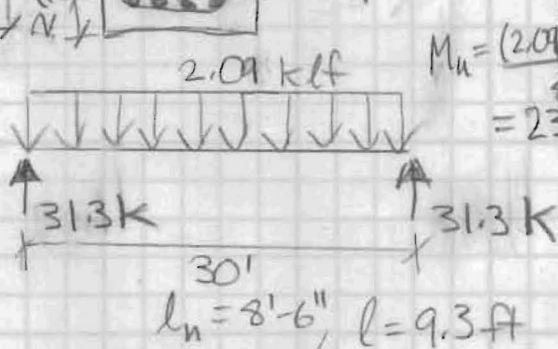 2.09 klf
Mu = (2.09
= 23
31.3 K
31.3 K
30'
ln = 8'-6", l = 9.3 ft